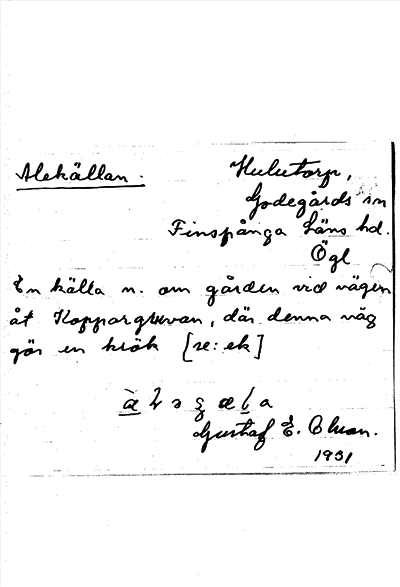 Alekällan.
Hulutorp,
Godegårds sn
Finspånga läns hd.
Ögl
En källa n. om gården vid vägen
åt Koppargruvan, där denna väg
gör en krök [se: ek]
Gustaf E.
1931